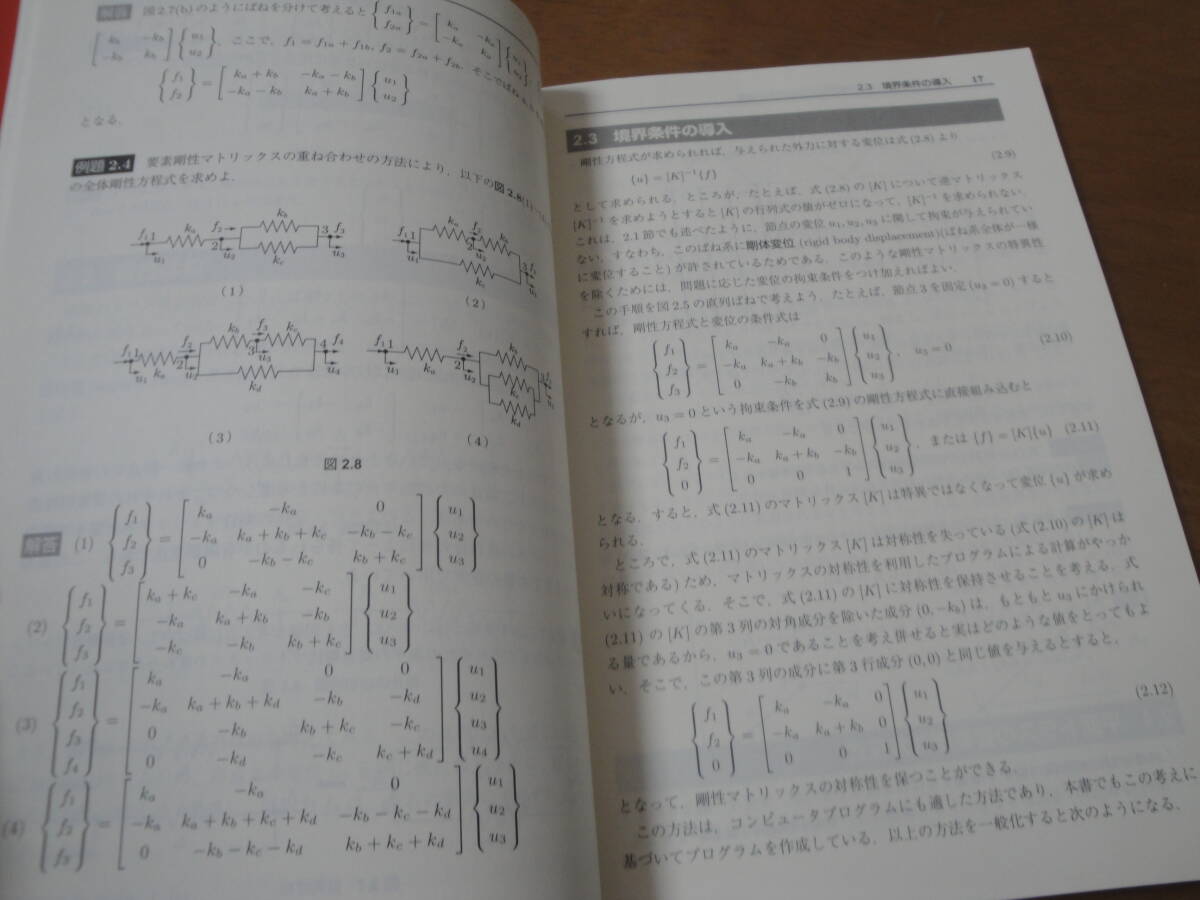 解答 図2.7(b)のようにばねを分けて考えると {f1a f2a} = [ka −ka −ka ka] {u1 u2}
[kb −kb −kb kb] {u1 u2}, ここで, f1 = f1a + f1b, f2 = f2a + f2b, そこでばね
{f1 f2} = [ka + kb −ka − kb −ka − kb ka + kb] {u1 u2}
となる.
例題 2.4 要素剛性マトリックスの重ね合わせの方法により, 以下の図2.8(1)
の全体剛性方程式を求めよ.
f1 1 u1 ka f2 2 u2 kb kc 3 f3 u3
(1)
f1 1 u1 ka f2 2 u2 kb kc 3
(2)
f1 1 u1 ka f2 2 u2 kb f3 3 u3 kc kd 4 f4 u4
(3)
f1 1 u1 ka f2 2 u2 kd 3
(4)
図 2.8
解答 (1) {f1 f2 f3} = [ka −ka 0
−ka ka + kb + kc −kb − kc
0 −kb − kc kb + kc] {u1 u2 u3}
(2) {f1 f2 f3} = [ka + kc −ka −kc
−ka ka + kb −kb
−kc −kb kb + kc] {u1 u2 u3}
(3) {f1 f2 f3 f4} = [ka −ka 0 0
−ka ka + kb + kd −kb −kd
0 −kb kb + kc −kc
0 −kd −kc kc + kd] {u1 u2 u3 u4}
(4) {f1 f2 f3} = [ka −ka 0
−ka ka + kb + kc + kd −kb − kc − kd
0 −kb − kc − kd kb + kc + kd] {u1 u2 u3}
2.3 境界条件の導入 17
2.3 境界条件の導入
剛性方程式が求められれば, 与えられた外力に対する変位は式(2.8)より
{u} = [K]−1{f} (2.9)
として求められる. ところが, たとえば, 式(2.8)の[K]について逆マトリックス
[K]−1を求めようとすると[K]の行列式の値がゼロになって, [K]−1を求められない.
これは, 2.1節でも述べたように, 節点の変位u1, u2, u3に関して拘束が与えられてい
ない, すなわち, このばね系に剛体変位(rigid body displacement)(ばね系全体が一様
に変位すること)が許されているためである. このような剛性マトリックスの特異性
を除くためには, 問題に応じた変位の拘束条件をつけ加えればよい.
この手順を図2.5の直列ばねで考えよう. たとえば, 節点3を固定(u3 = 0)すると
すれば, 剛性方程式と変位の条件式は
{f1 f2 f3} = [ka −ka 0
−ka ka + kb −kb
0 −kb kb] {u1 u2 u3}, u3 = 0 (2.10)
となるが, u3 = 0という拘束条件を式(2.9)の剛性方程式に直接組み込むと
{f1 f2 0} = [ka −ka 0
−ka ka + kb −kb
0 0 1] {u1 u2 u3}, または {f} = [K]{u} (2.11)
となる. すると, 式(2.11)のマトリックス[K]は特異ではなくなって変位{u}が求め
られる.
ところで, 式(2.11)のマトリックス[K]は対称性を失っている(式(2.10)の[K]は
対称である)ため, マトリックスの対称性を利用したプログラムによる計算がやっか
いになってくる. そこで, 式(2.11)の[K]に対称性を保持させることを考える. 式
(2.11)の[K]の第3列の対角成分を除いた成分(0, −kb)は, もともとu3にかけられ
る量であるから, u3 = 0であることを考え併せると実はどのような値をとってもよ
い. そこで, この第3列の成分に第3行成分(0,0)と同じ値を与えるとすると,
{f1 f2 0} = [ka −ka 0
−ka ka + kb 0
0 0 1] {u1 u2 u3} (2.12)
となって, 剛性マトリックスの対称性を保つことができる.
この方法は, コンピュータプログラムにも適した方法であり, 本書でもこの考えに
基づいてプログラムを作成している. 以上の方法を一般化すると次のようになる.